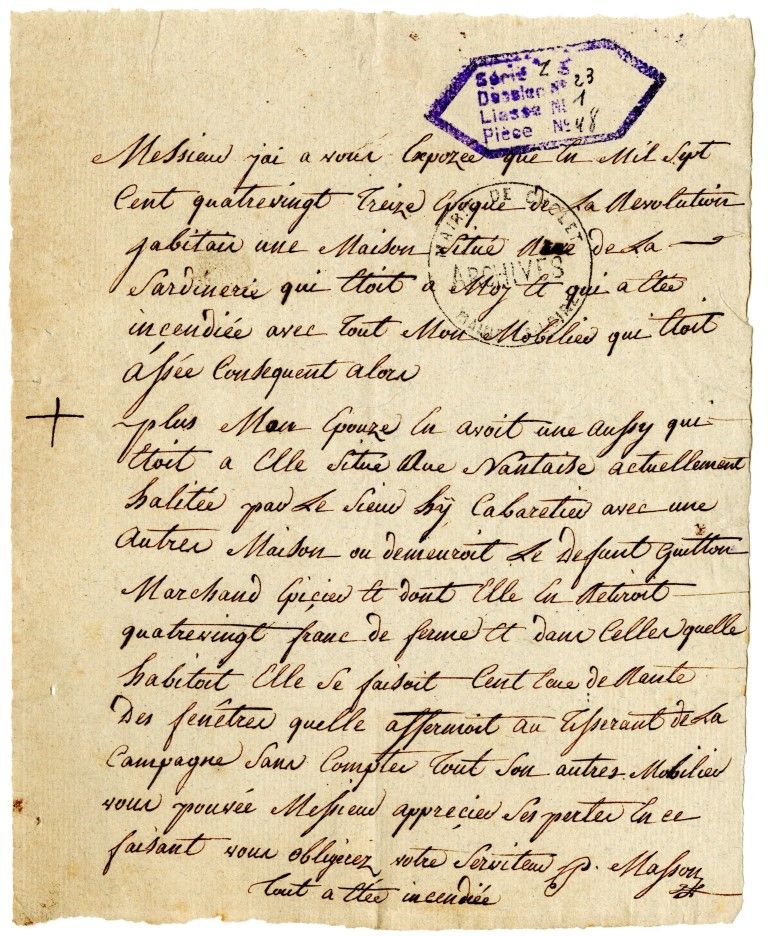 Série Z 5
Dossier № 23
Liasse № 1
Pièce № 48
MAIRIE DE CHOLET
ARCHIVES
MAINE & LOIRE
Messieur jai a vous Expozée que En Mil Sept
Cent quatrevingt Treize Epoque de La Revolution
jabitais une Maison Situé Rue de La
Sardinerie qui Etoit a Moy Et qui a Etée
incendiée avec Tout Mon Mobilier qui Etoit
assée Consequent alors
plus Mon Epouze En avoit une aussy qui
Etoit a Elle Situe Rue Nantaise actuellement
habitée par Le Sieur hÿ Cabaretier avec une
autres Maison ou demeuroit Le Defunt Guitton
Marchand Epicier Et dont Elle En Retiroit
quatrevingt franc de ferme Et dans Celles quelle
habitoit Elle Se faisoit Cent Ecue de Rante
Des fenêtres quelle affermoit au Tisserant de La
Campagne Sans Compter Tout Son autres Mobilier
vous pouvée Messieur apprecier Ses pertes En ce
faisant vous obligerez votre Serviteur p. Masson
Tout a Etée incendiée